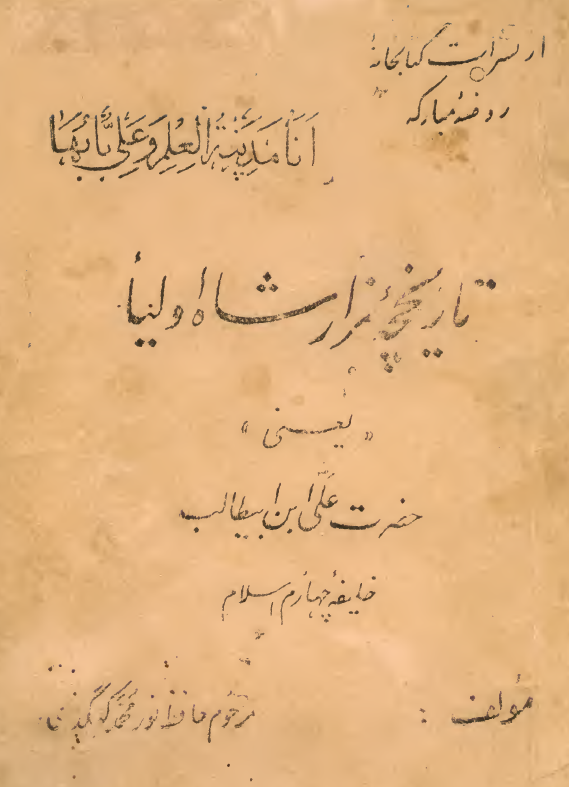 از نشرات کتابخانهٔ
روضهٔ مبارکه
اَنَا مَدِیْنَةُ الْعِلْمِ وَعَلِیٌّ بَابُهَا
تاریخچهٔ مزار شاه اولیأ
« یعنی »
حضرت علی ابن ابیطالب
خلیفهٔ چهارم اسلام
مؤلف :
مرحوم حافظ نور محمد کهگدای